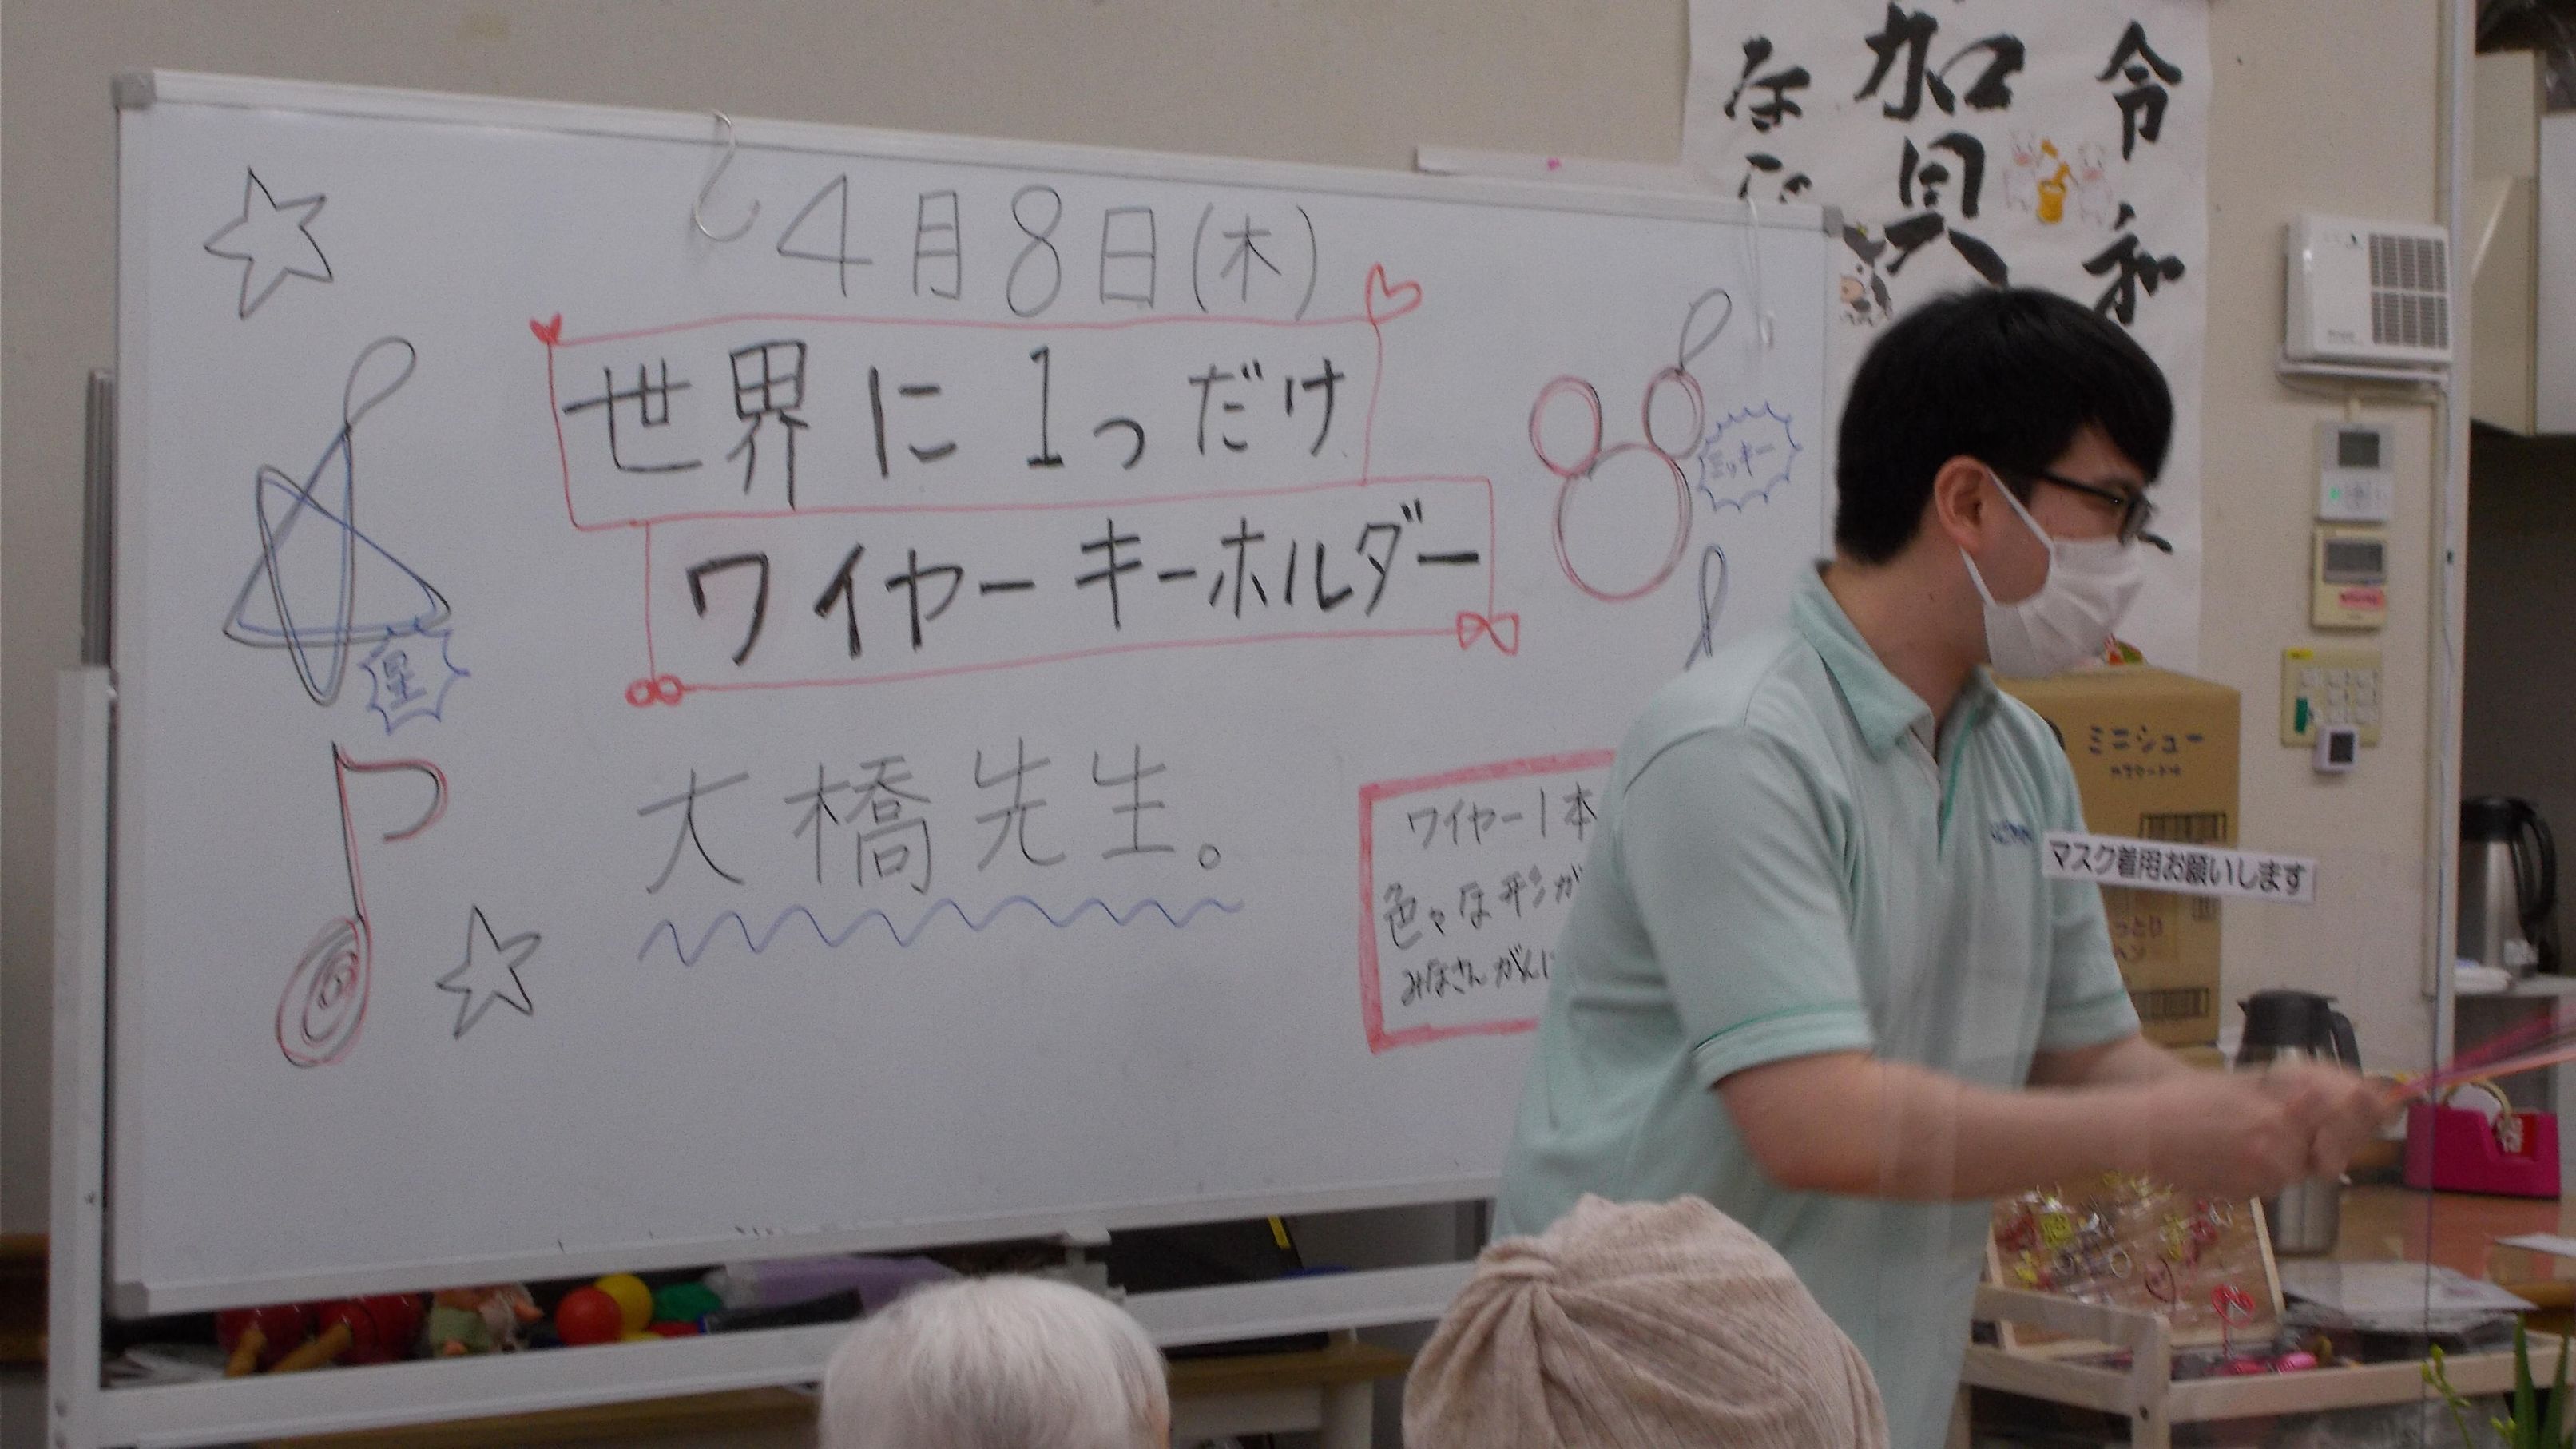 4月8日(木)
世界に1つだけ
ワイヤーキーホルダー
大橋先生。
星
ミッキー
ワイヤー1本
色々な形が
みなさんがんじ
令和
加賀
マスク着用お願いします
ミニシュー